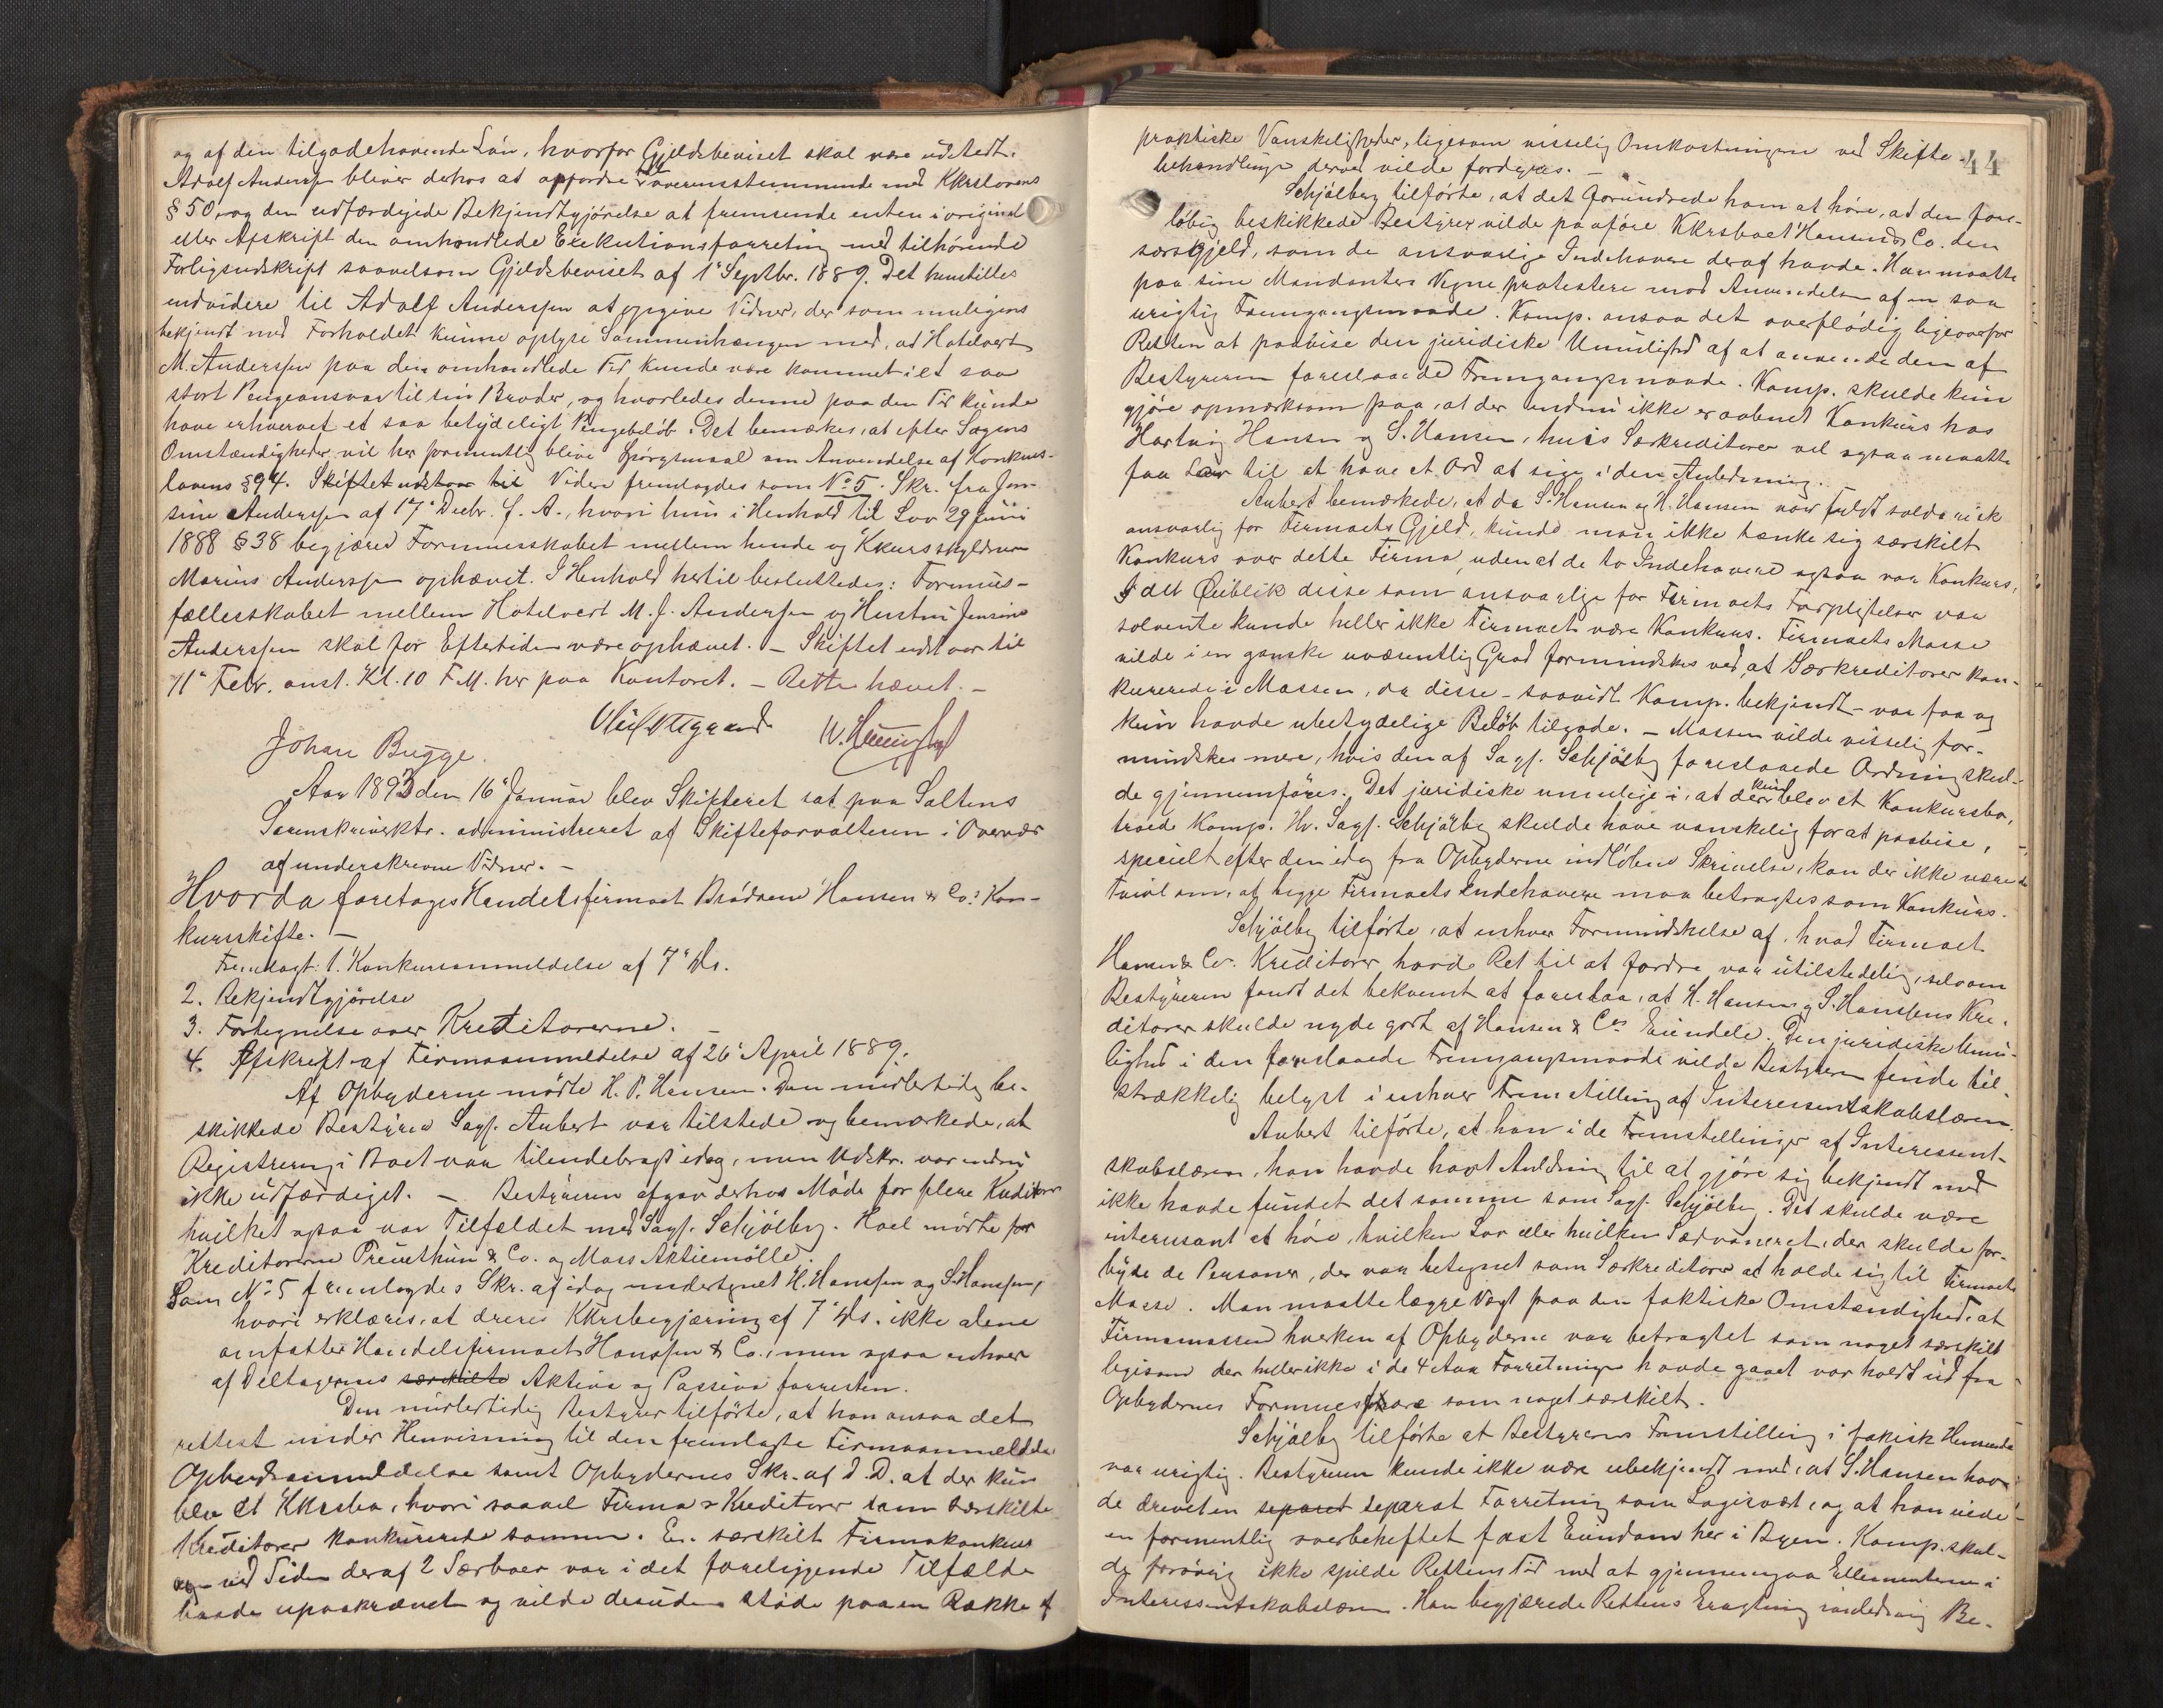 og af den tilgodehavende Lön, hvorfor Gjeldsbeviset skal være udstedt.
Adolf Anderssen bliver derhos at opfordre til overensstemmende med Kkrslovens
§ 50, og den udfærdigede Bekjendtgjörelse at fremsende enten i original
eller Afskrift den omhandlede Exekutionsforretning med tilhörende
Forligsudskrift saavelsom Gjeldsbeviset af 1' Septbr. 1889. Det henstilles
endvidere til Adolf Anderssen at opgive Vidner, der som muligens
bekjendt med Forholdet kunne oplyse Sammenhængen med, at Hotelvert
M. Anderssen paa den omhandlede Tid kunde være kommet i et saa
stort Pengeansvar til sin Broder, og hvorledes denne paa den Tid kunde
have erhvervet et saa betydeligt Pengebelöb. Det bemærkes, at efter Sagens
Omstændigheder vil her formentlig blive Spörgsmaal om Anvendelse af Konkurs-
lovens § 94. Skiftet udstaar til Videre fremlagdes som No 5. Skr. fra Jen-
sine Anderssen af 17' Decbr. f. A., hvori hun i Henhold til Lov 29 Juni
1888 § 38 begjærer Formuesskabet mellem hende og Kkursskyldneren
Marius Anderssen ophævet. I Henhold hertil besluttedes: Formues-
fællesskabet mellem Hotelvert M. J. Anderssen og Hustru Jensine
Anderssen skal for Eftertiden være ophævet. – Skiftet udstaar til
11' Febr. anst. Kl. 10 F.M. her paa Kontoret. – Retten hævet. –
Johan Bugge.
Aar 1893 den 16' Januar blev Skifteret sat paa Saltens
Sorenskriverktr. administreret af Skifteforvalteren i Overvær
af underskrevne Vidner. –
Hvorda foretoges Handelsfirmaet Brödrene Hansen & Co.s Kon-
kursskifte. –
Fremlagt: 1. Konkursanmeldelse af 7' ds.
2. Bekjendtgjörelse
3. Fortegnelse over Kreditorerne. –
4. Afskrift af Firmaanmeldelse af 26' April 1889.
Af Opbyderne mödte H. P. Hansen. Den midlertidig be-
skikkede Bestyrer Sagf. Aubert var tilstede og bemærkede, at
Registrering i Boet var tilendebragt idag, men Udskr. var endnu
ikke udfærdiget. – Bestyreren afgav derhos Möde for flere Kreditorer
hvilket ogsaa var Tilfældet med Sagf. Schjölberg. Hoel mödte for
Kreditorerne Preusthun & Co. og Moss Aktiemölle.
Som No 5 fremlagdes Skr. af idag undertegnet H. Hanssen og S. Hanssen,
hvori erklæres, at deres Kkrsbegjæring af 7' ds. ikke alene
omfatter Handelsfirmaet Hanssen & Co., men ogsaa enhver
af Deltagernes særskilte Aktiva og Passiva forresten.
Den midlertidig Bestyrer tilförte, at han ansaa det
rettest under Henvisning til den fremlagte Firmaanmeldelse
Opbudsanmeldelse samt Opbydernes Skr. af d. D. at der kun
blev et Kkrsbo, hvori saavel Firmas Kreditorer som særskilte
Kreditorer konkurerede sammen. En særskilt Firmakonkurs
og ved Siden deraf 2 Særboer var i det foreliggende Tilfælde
baade upaakrævet og vilde desuden stöde paa en Række af
44
praktiske Vanskeligheder, ligesom visselig Omkostningerne ved Skifte-
behandlingen derved vilde fordyres. –
Schjölberg tilförte, at det forundrede ham at höre, at den fore-
löbig beskikkede Bestyrer vilde paaföre Kkrsboet Hansen & Co. den
særsgjeld, som de ansvarlige Indehavere deraf havde. Han maatte
paa sine Mandanters Vegne protestere mod Anvendelsen af en saa
urigtig Fremgangsmaade. Komp. ansaa det overflödig ligeoverfor
Retten at paavise den juridiske Umulighed af at anvende den af
Bestyreren foreslaaede Fremgangsmaade. Komp. skulde kun
gjöre opmærksom paa, at der endnu ikke er aabnet Konkurs hos
Hartvig Hansen og S. Hansen, hvis Særkreditorer vel ogsaa maatte
faa Lov til at have et Ord at sige i den Anledning.
Aubert bemærkede, at da S. Hansen og H. Hansen var fuldt solidarisk
ansvarlig for Firmaets Gjeld, kunde man ikke tænke sig særskilt
Konkurs over dette Firma, uden at de to Indehavere ogsaa var Konkurs,
I det Öieblik disse som ansvarlige for Firmaets Forpligtelser var
solvente kunde heller ikke Firmaet være Konkurs. Firmaets Masse
vilde i en ganske uvæsentlig Grad formindskes ved, at Særkreditorer kon-
kurerede i Massen, da disse – saavidt Komp. bekjendt – var faa og
kun havde ubetydelige Belöb tilgode. – Massen vilde visselig for-
mindskes mere, hvis den af Sagf. Schjölberg foreslaaede Ordning skul-
de gjennemföres. Det juridisk umulige i, at der kun blev et Konkursbo,
troede Komp. Hr. Sagf. Schjölberg skulde have vanskelig for at paavise,
specielt efter den idag fra Opbyderne indlöbne Skrivelse, kan der ikke være
Tvivl om, at begge Firmaets Indehavere maa betragtes som Konkurs.
Schjölberg tilförte, at enhver Formindskelse af, hvad Firmaet
Hansen & Co. Kreditorer havde Ret til at fordre var utilstedelig, selv om
Bestyreren fandt det bekvemt at foreslaa, at H. Hansens og S. Hanssens Kre-
ditorer skulde nyde godt af Hansen & Cos Eiendele. Den juridiske Umu-
lighed i den foreslaaede Fremgangsmaade vilde Bestyreren finde til-
strækkelig belyst i enhver Fremstilling af Interessentskabslæren.
Aubert tilförte, at han i de Fremstillinger af Interessent-
skabslæren, han havde havt Anledning til at gjöre sig bekjendt med
ikke havde fundet det samme som Sagf. Schjölberg. Det skulde være
interessant at höre, hvilken Lov eller hvilken Sædvaneret, der skulde for-
byde de Personer, der var betegnet som Særkreditorer at holde sig til Firmaets
Masse. Man maatte lægge Vægt paa den faktiske Omstændighed, at
Firmamassen hverken af Opbyderne var betragtet som noget særskilt
ligesom der heller ikke i de 4 Aar Forretningen havde gaaet var holdt ud fra
Opbydernes Formuesfære som noget særskilt.
Schjölberg tilförte at Bestyrerens Fremstilling i faktisk Henseende
var urigtig. Bestyreren kunde ikke være ubekjendt med, at S. Hansen hav-
de drevet en separat separat Forretning som Logivært, og at han eiede
en formentlig overbeheftet fast Eiendom her i Byen. Komp. skul-
de forövrig ikke spilde Rettens Tid med at gjennemgaa Ellementerne i
Interessentskabslæren. Han begjærede Rettens Eragtning i Be-